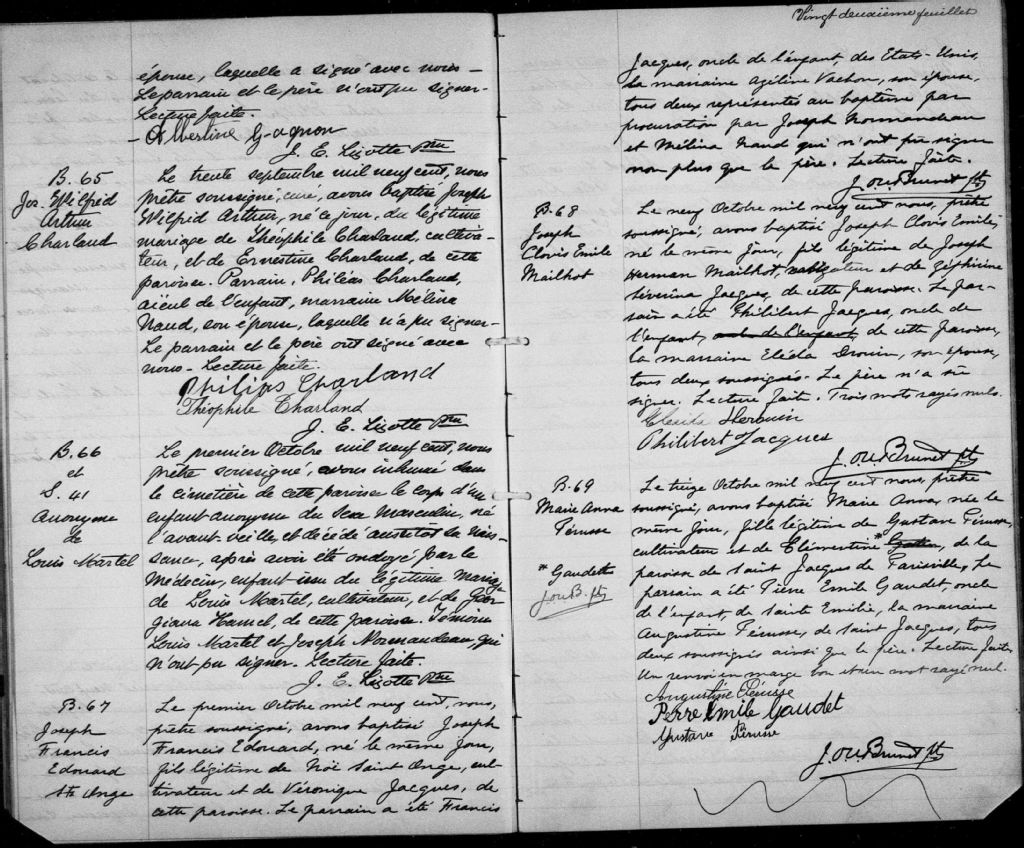 épouse, laquelle a signé avec nous –
Le parrain et le père n'ont pu signer –
Lecture faite.
– Albertine Gagnon
J. E. Lizotte Ptre
B. 65
Jos. Wilfrid
Arthur
Charland
Le trente septembre mil neuf cent, nous
prêtre soussigné, curé, avons baptisé Joseph
Wilfrid Arthur, né ce jour, du légitime
mariage de Théophile Charland, cultiva-
teur, et de Ernestine Charland, de cette
paroisse. Parrain, Philéas Charland,
aïeul de l'enfant, marraine Mélina
Naud, son épouse, laquelle n'a pu signer –
Le parrain et le père ont signé avec
nous – Lecture faite.
Philias Charland
Théophile Charland
J. E. Lizotte Ptre
B. 66
et
S. 41
Anonyme
de
Louis Martel
Le premier Octobre mil neuf cent, nous
prêtre soussigné, avons inhumé dans
le cimetière de cette paroisse le corps d'un
enfant anonyme du sexe masculin, né
l'avant veille, et décédé aussitôt sa nais-
sance, après avoir été ondoyé par le
Médecin, enfant issu du légitime mariage
de Louis Martel, cultivateur, et de Geor
giana Hamel, de cette paroisse. Témoins
Louis Martel et Joseph Normandeau, qui
n'ont pu signer. Lecture faite.
J. E. Lizotte Ptre
B. 67
Joseph
Francis
Edouard
St. Ange
Le premier Octobre mil neuf cent, nous,
prêtre soussigné, avons baptisé Joseph
Francis Edouard, né le même jour,
fils légitime de Noë Saint Ange, cul-
tivateur et de Véronique Jacques, de
cette paroisse. Le parrain a été Francis
Vingt deuxième feuillet
Jacques, oncle de l'enfant, des Etats-Unis,
la marraine Agiline Vachon, son épouse,
tous deux représentés au baptême par
procuration par Joseph Normandeau
et Mélina Naud qui n'ont pu signer
non plus que le père. Lecture faite.
J. OU. Brunet ptr
B. 68
Joseph
Clovis Emile
Mailhot
Le neuf Octobre mil neuf cent nous, prêtre
soussigné, avons baptisé Joseph Clovis Emile,
né le même jour, fils légitime de Joseph
Herman Mailhot, navigateur et de Zéphirine
Séverina Jacques, de cette paroisse. Le par-
rain a été Philibert Jacques, oncle de
l'enfant, oncle de l'enfant, de cette paroisse,
la marraine Eléda Drouin, son épouse,
tous deux soussignés. Le père n'a su
signer. Lecture faite. Trois mots rayés nuls.
Philibert Jacques
J. OU. Brunet ptr
B. 69
Marie Anna
Pérusse
* Gaudette
J. OU. B. ptr
Le treize Octobre mil neuf cent nous, prêtre
soussigné, avons baptisé Marie Anna, née le
même jour, fille légitime de Gustave Pérusse,
cultivateur et de Clémentine * , de la
paroisse de Saint Jacques de Parisville. Le
parrain a été Pierre Emile Gaudet, oncle
de l'enfant, de Sainte Emilie, la marraine
Augustine Pérusse, de Saint Jacques, tous
deux soussignés ainsi que le père. Lecture faite.
Un renvoi en marge bon et un mot rayé nul.
Augustine Pérusse
Perre Emile Gaudet
Gustave Pérusse
J. OU. Brunet ptr